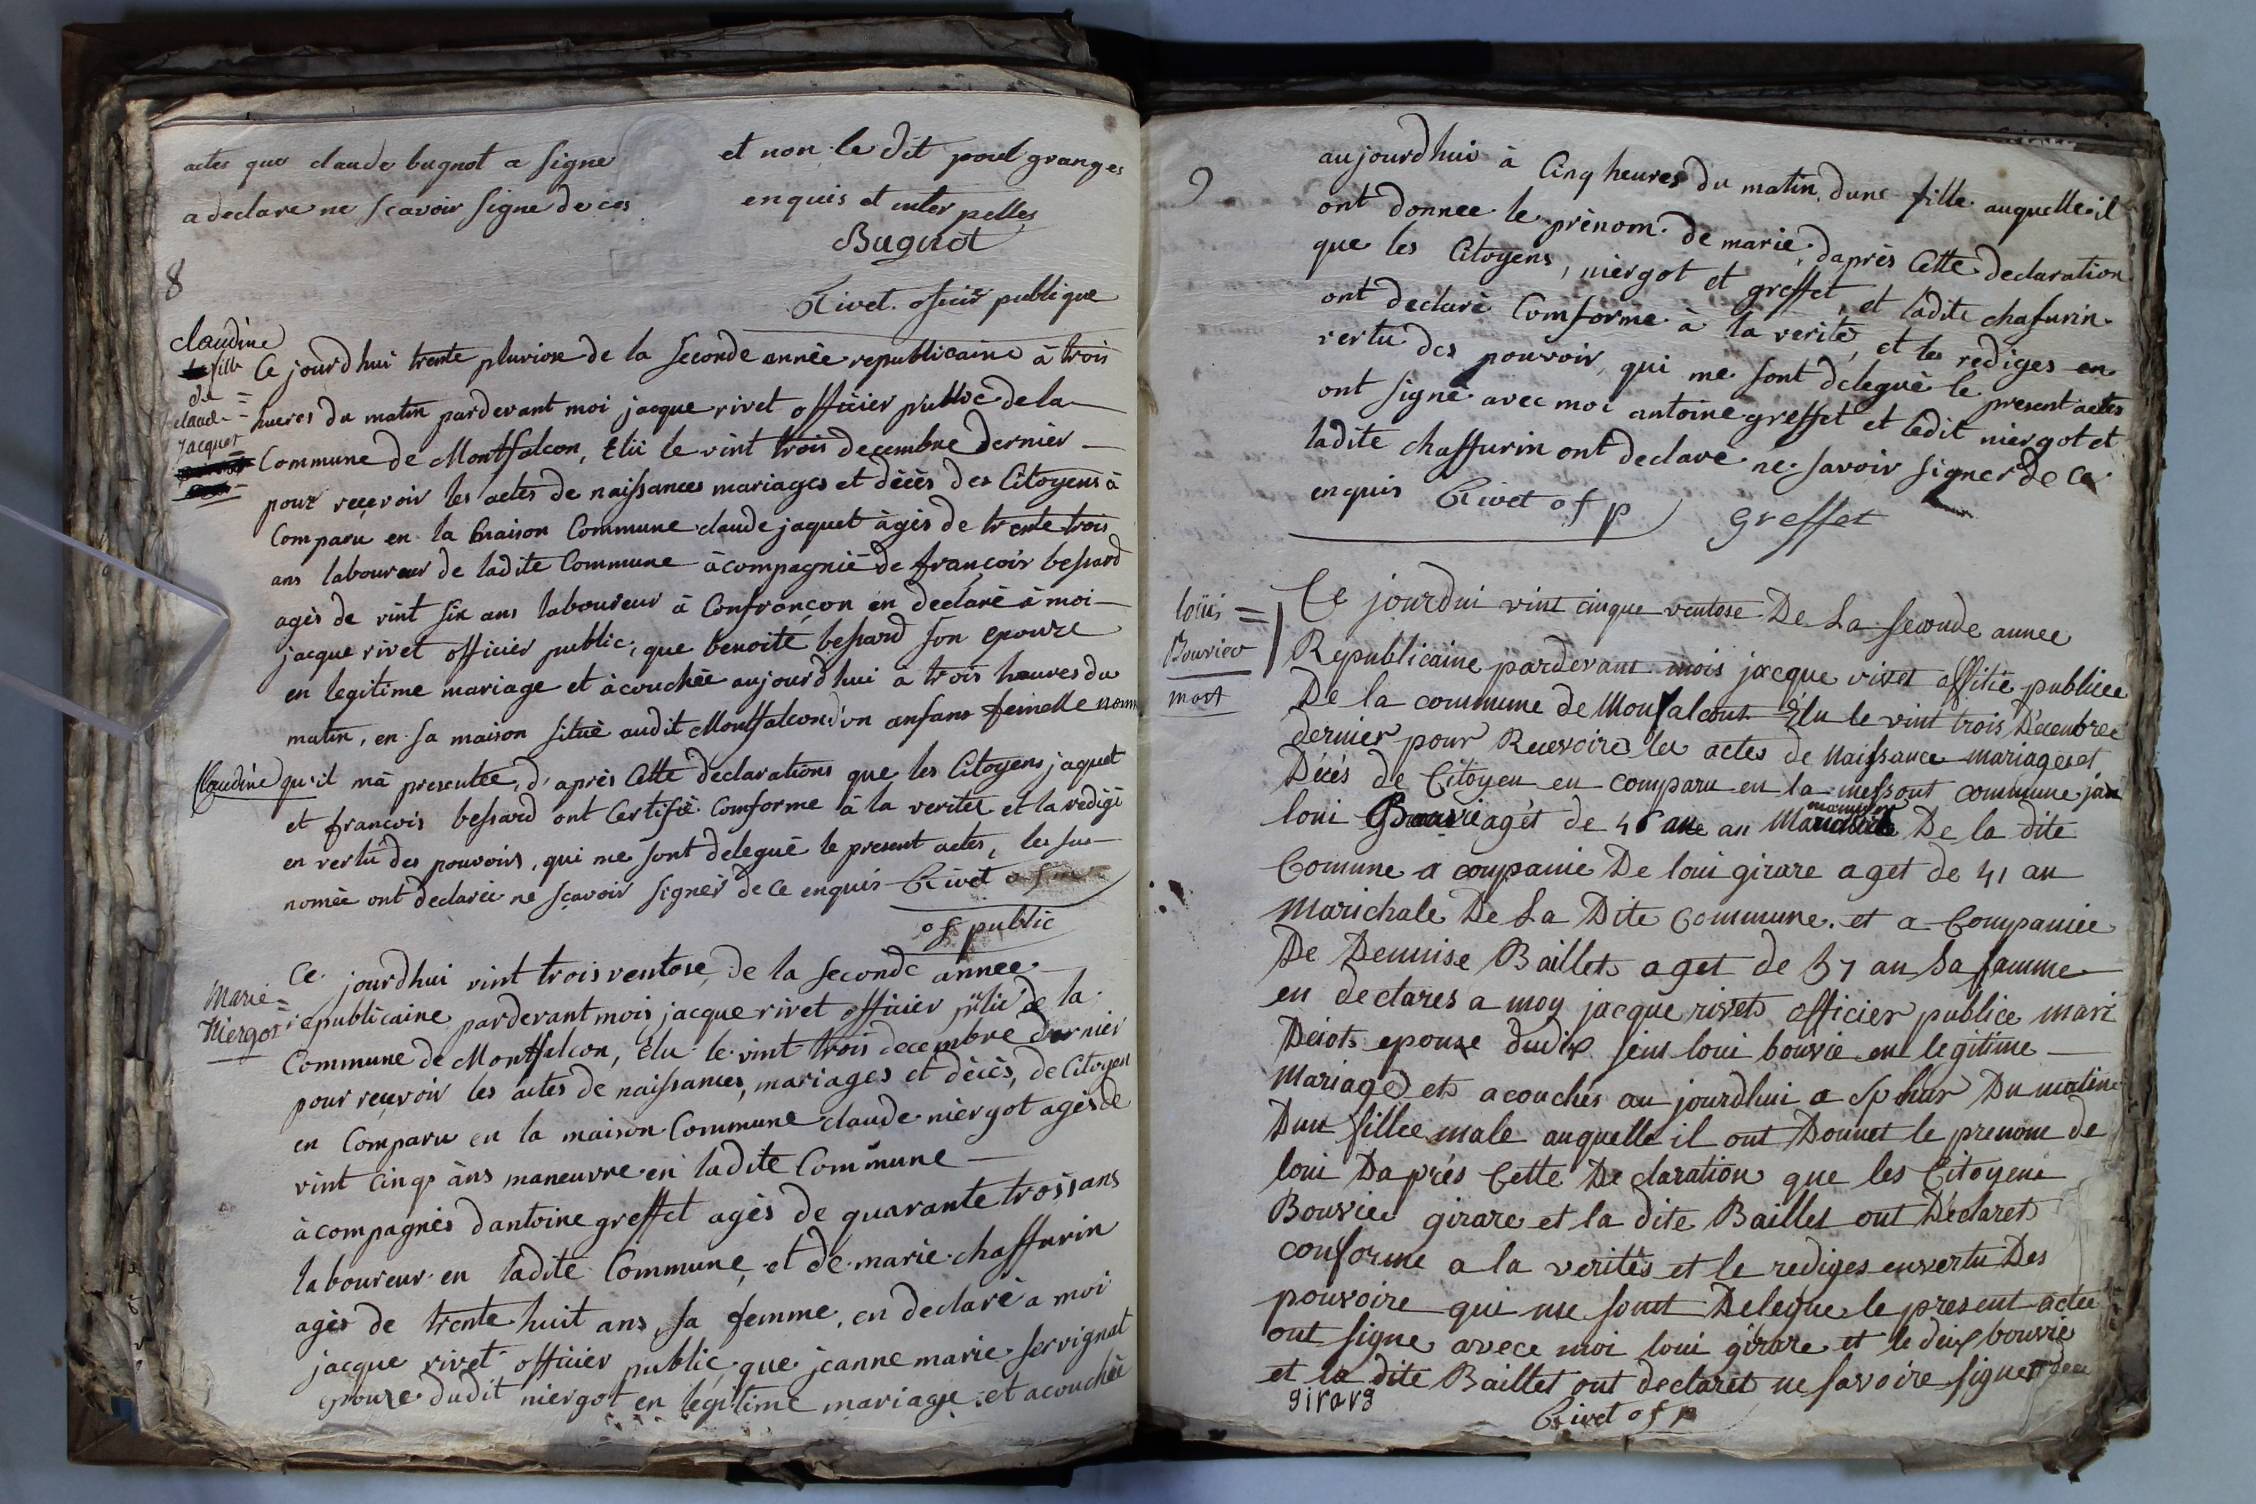 actes que claude bugnot a signe et non le dit poul granges
a declare ne scavoir signe de ces enquis et inter pelles
Bugnot
8
Rivet. oficie publique
claudine
fille
de
claude
jacquet
Ce jourd'hui trente pluviose de la seconde année republicaine à trois
hueres du matin pardevant moi jacque rivet officier public de la
Commune de Montfalcon, Elü le vint trois decembre dernier
pour reçevoir les actes de naissances mariages et décès des Citoyens à
Comparu en la maison Commune claude jaquet àgés de trente trois
ans laboureur de ladite Commune àcompagnié de françois bessard
agés de vint six ans laboureur à Confrançon en declaré à moi
jacque rivet officier public, que benoite bessard son epouze
en legitime mariage et àcouchée aujourd'hui a trois heures du
matin, en sa maison situé audit Montfalcon d'un anfans feinelle nom
Claudine qu'il mà presentée, d'après Cette declarations que les Citoyens jaquet
et francois bessard ont Certifié Comforme à la veritee et la redigé
en vertu des pouvoirs, qui me sont delegué le present actes, les sus
nomée ont declarée ne sçavoir signér de ce enquis Rivet
of public
Marie
Niergot
Ce jourdhui vint trois ventose, de la seconde année
republicaine pardevant mois jacque rivet officier pulic de la
Commune de Montfalcon, Elu le vint trois decembre dernier
pour reçevoir les actes de naissances, mariages et décès, de Citoyen
en Comparu en la maison Commune claude niergot agés de
vint Cinq àns maneuvre en ladite Commune
àcompagnés dantoine greffet agés de quarante trois ans
laboureur en ladite Commune, et de marie chaffurin
agés de trente huit ans, sa femme, en declaré a moi
jacque rivet officier public, que jeanne marie servignat
epouze dudit niergot en legitime mariage et acouchée
9
aujourdhui à Cinq heures du matin dune fille auquelle il
ont donnee le prénom de marie, daprès Cette declaration
que les Citoyens, niergot et greffet, et ladite chafurin
ont declaré Comforme à la verité, et les rediges en
vertu des pouvoir, qui me sont delegué le present actes
ont signé avec moi antoine greffet et ledit niergot et
ladite chaffurin ont declare ne savoir signer de ce
enquis Rivet of p Greffet
loüis
Bouvier
mort
Ce jourdui vint cinque ventose De La seconde annee
Republicaine pardevant mois jacque rivet offitie publice
De la commune de Monfalcont Elu le vint trois Decembree
dernier pour Recevoire les actes de Naissance mariages et
Décés de Citoyen en comparu en la messont commune jan
loui agét de an De la dite
Comune a coupanie De loui girare aget de 41 an
Marichale De La Dite Commune. et a Companiee
De Dennise Baillet aget de 37 an Sa famme
en declares a moy jacque rivet officier publice mari
epouze loui bouvie en legitime
Mariage et acouchés au jourdhui a Du matine
Dun fillee male auquelle il ont Donnet le prenom de
loui Daprés Cette Declaration que les Citoyens
Bouviee girare et la dite Baillet ont Déclaret
conforme a la verités et le rediges en vertu Des
pouvoire qui me sont Delegue le present actee
out signe avece moi loui girare et le bouvie
et la dite Baillet ont declaret ne savoire signer dece
girarg
Rivet of p